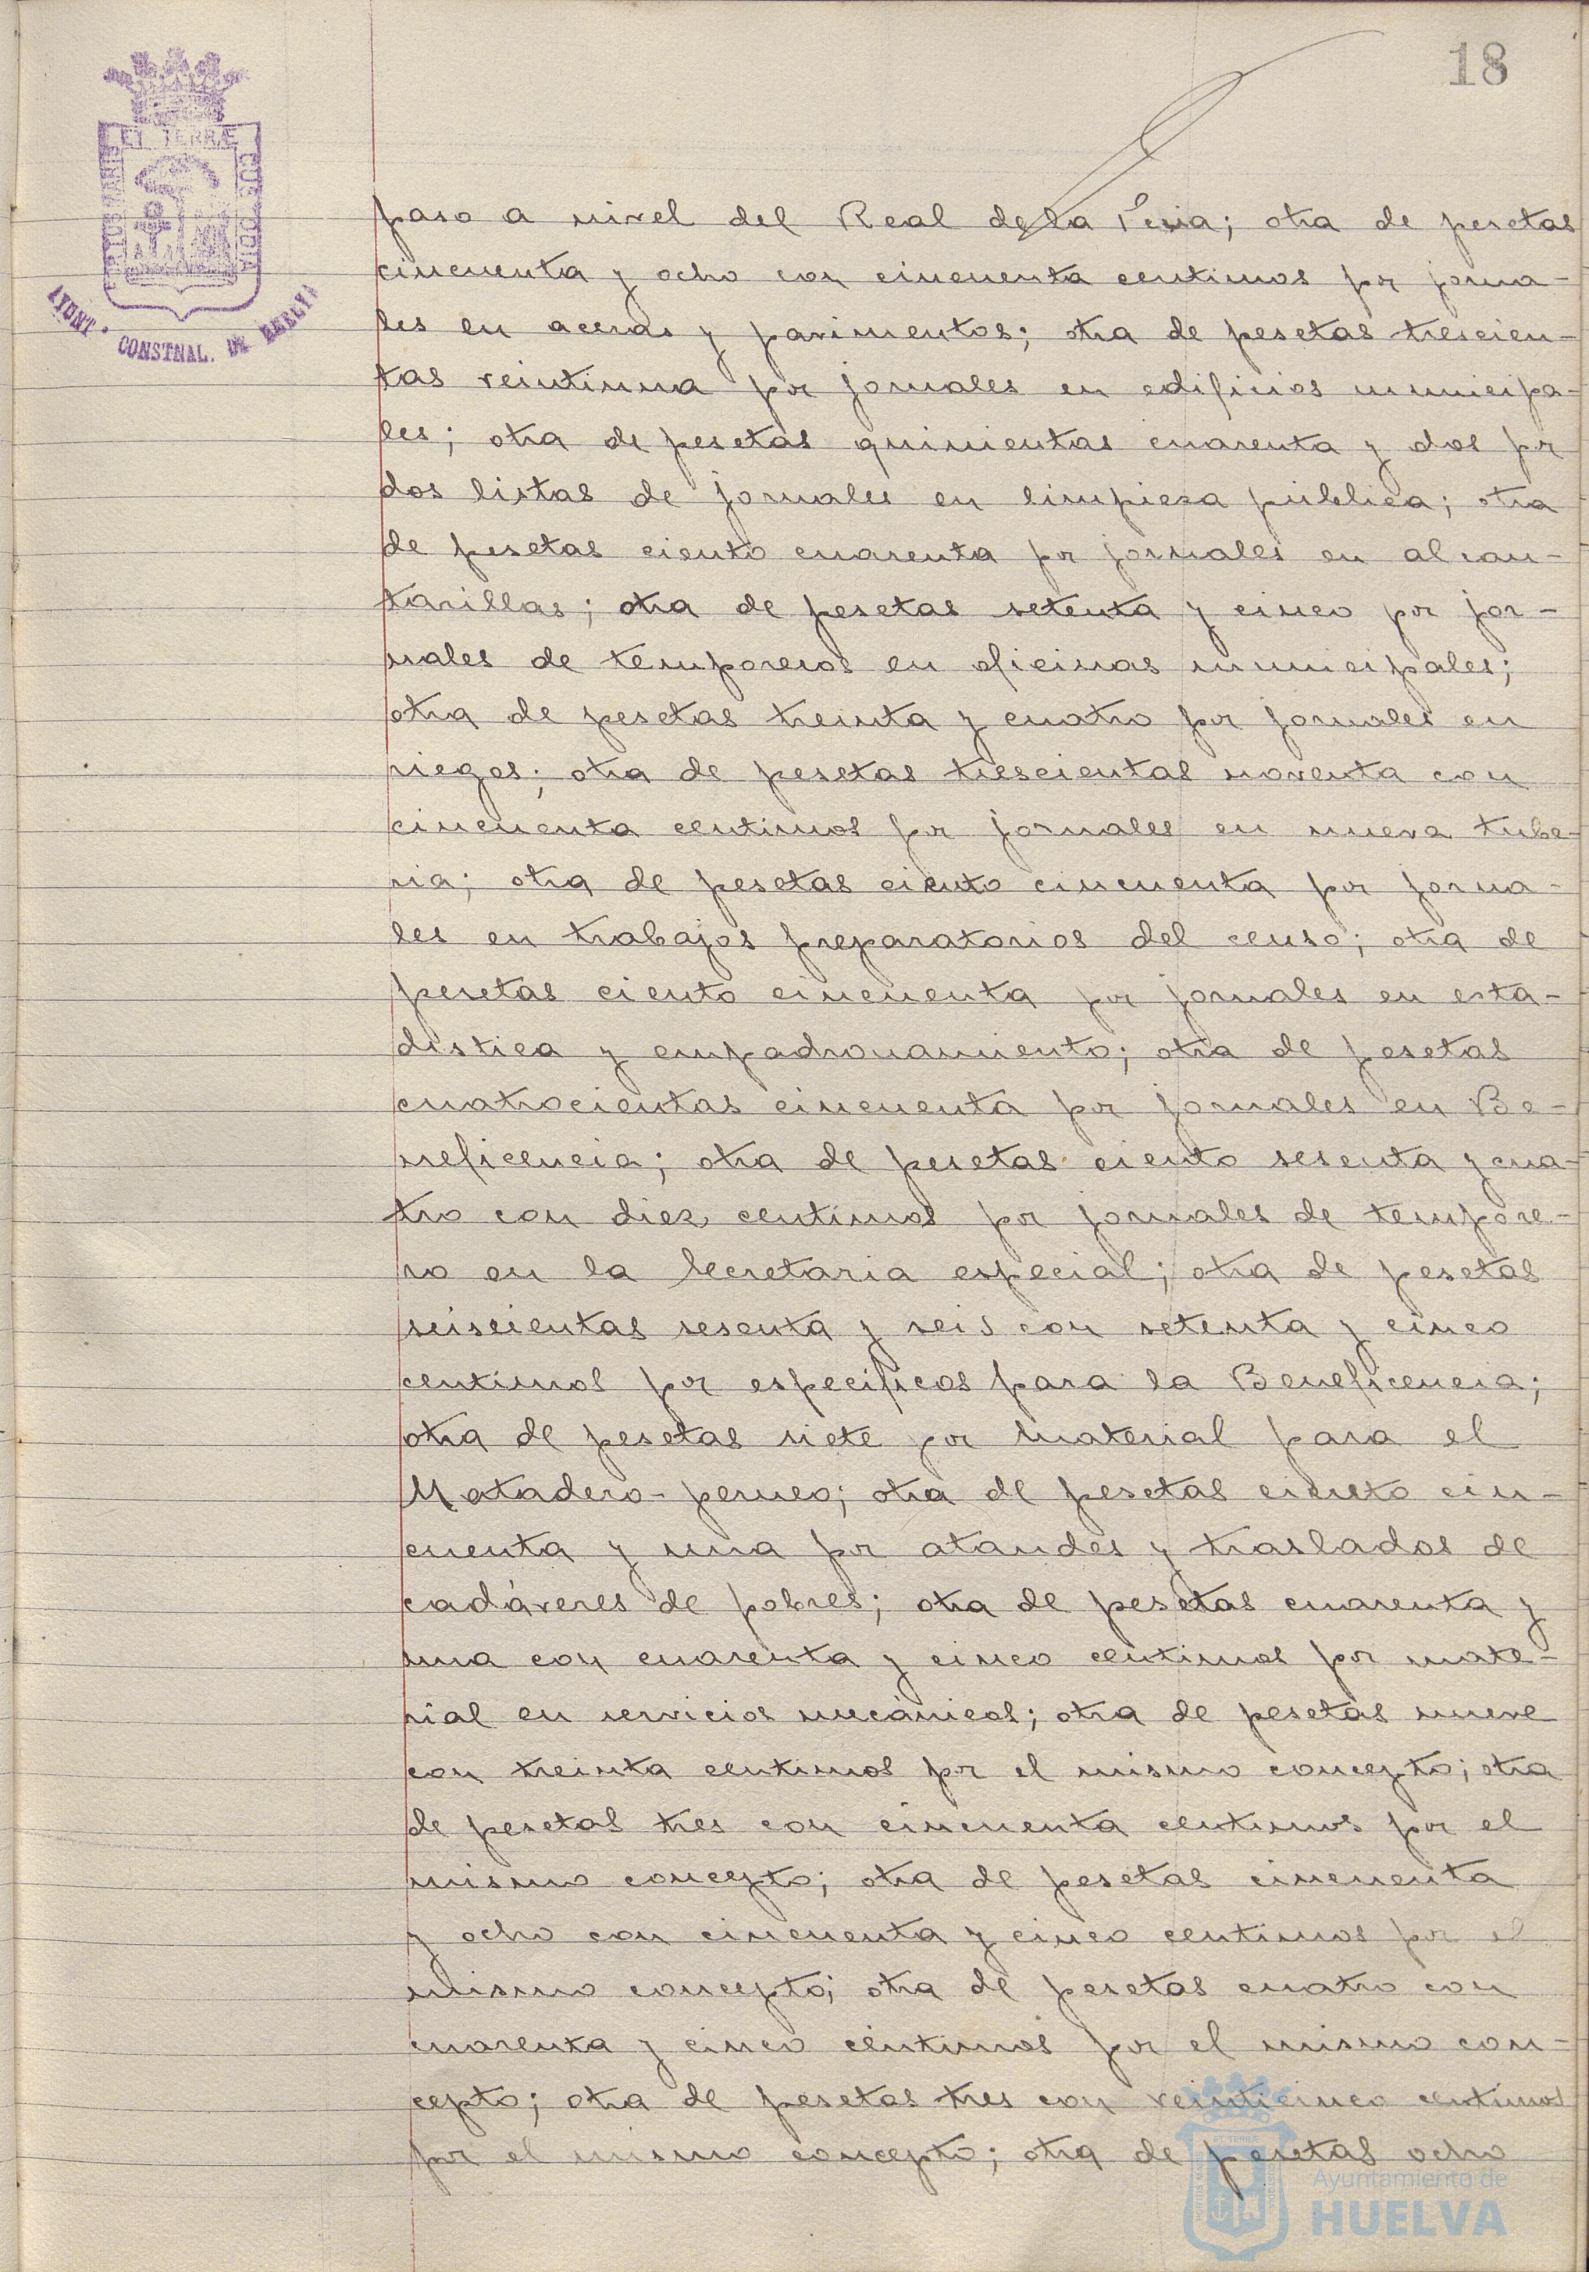 18
ET TERRÆ
CUSTODIA
AYUNT.º CONSTNAL. DE HUELVA
paso a nivel del Real de la Feria; otra de pesetas
cincuenta y ocho con cincuenta centimos por jorna-
les en aceras y pavimentos; otra de pesetas trescien-
tas veintiuna por jornales en edificios municipa-
les; otra de pesetas quinientas cuarenta y dos por
dos listas de jornales en limpieza pública; otra
de pesetas ciento cuarenta por jornales en alcan-
tarillas; otra de pesetas setenta y cinco por jor-
nales de temporeros en oficinas municipales;
otra de pesetas treinta y cuatro por jornales en
riegos; otra de pesetas trescientas noventa con
cincuenta centimos por jornales en nueva tube-
ria; otra de pesetas ciento cincuenta por jorna-
les en trabajos preparatorios del censo; otra de
pesetas ciento cincuenta por jornales en esta-
distica y empadronamiento; otra de pesetas
cuatrocientas cincuenta por jornales en Be-
neficencia; otra de pesetas ciento sesenta y cua-
tro con diez centimos por jornales de tempore-
ro en la Secretaria especial; otra de pesetas
seiscientas sesenta y seis con setenta y cinco
centimos por especificos para la Beneficencia;
otra de pesetas siete por material para el
Matadero-perneo; otra de pesetas ciento cin-
cuenta y una por ataudes y traslados de
cadáveres de pobres; otra de pesetas cuarenta y
una con cuarenta y cinco centimos por mate-
rial en servicios mecánicos; otra de pesetas nueve
con treinta centimos por el mismo concepto; otra
de pesetas tres con cincuenta centimos por el
mismo concepto; otra de pesetas cincuenta
y ocho con cincuenta y cinco centimos por el
mismo concepto; otra de pesetas cuatro con
cuarenta y cinco céntimos por el mismo con-
cepto; otra de pesetas tres con veinticinco centimos
por el mismo concepto; otra de pesetas ocho
Ayuntamiento de
HUELVA